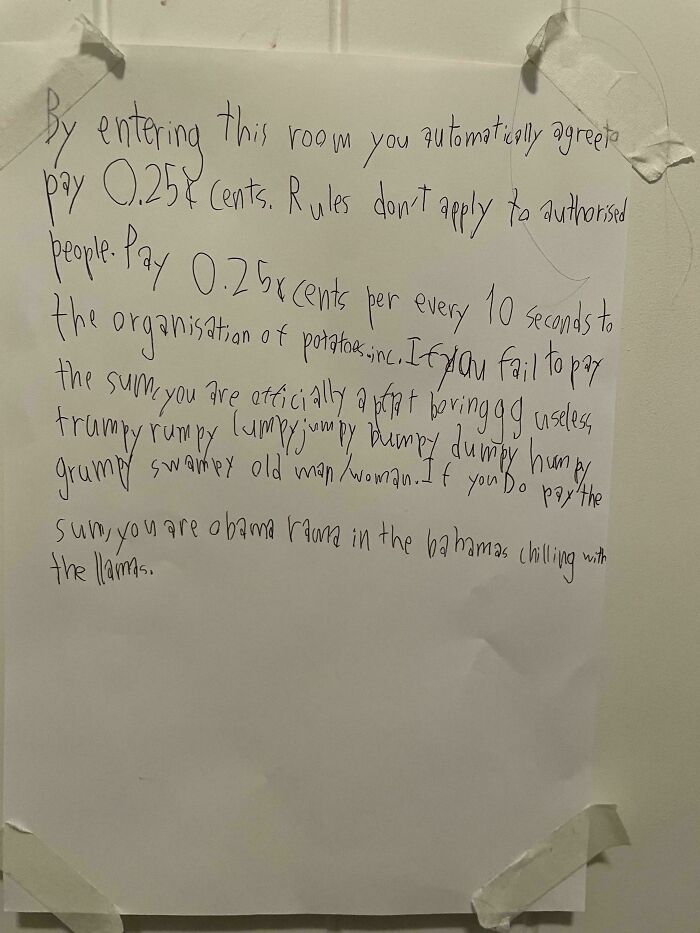 By entering this room you automatically agree to
pay 0.25¢ cents. Rules don't apply to authorised
people. Pay 0.25¢ cents per every 10 seconds to
the organisation of potatoes.inc. If you fail to pay
the sum, you are officially a fat boringgg useless
trumpy rumpy lumpy jumpy bumpy dumpy humpy
grumpy swampy old man/woman. If you Do pay the
sum, you are obama rama in the bahamas chilling with
the llamas.